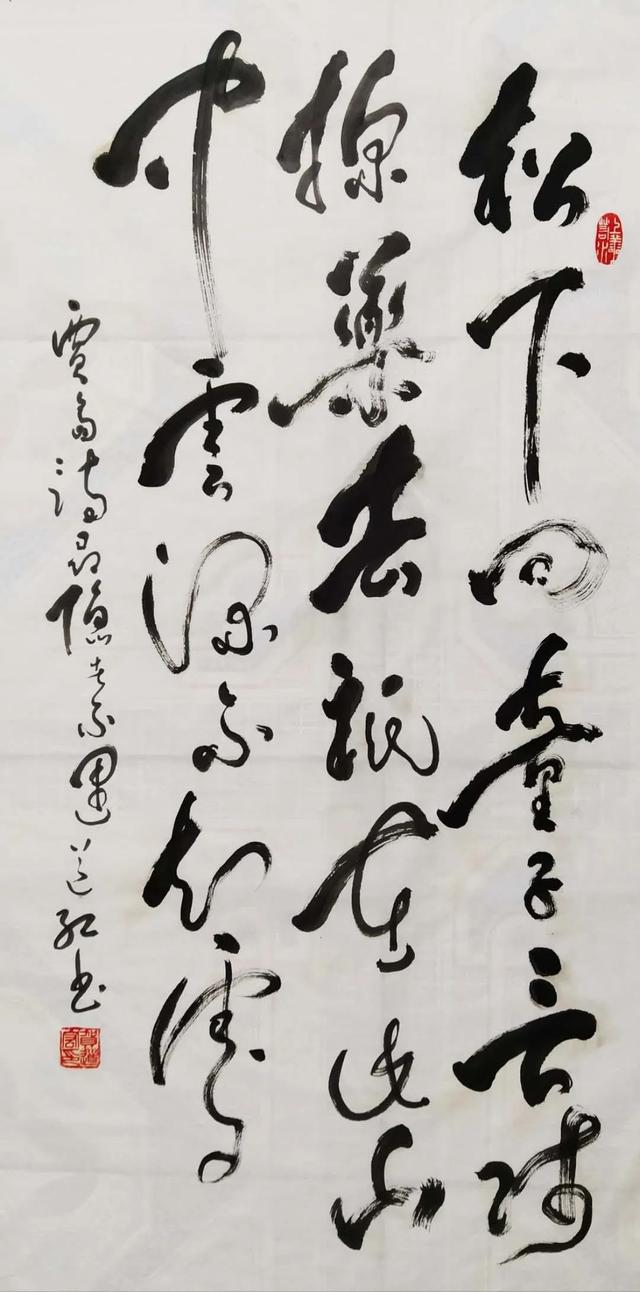 松下問童子言師
採藥去祇在此山
中雲深不知處
賈島詩尋隱者不遇 道書